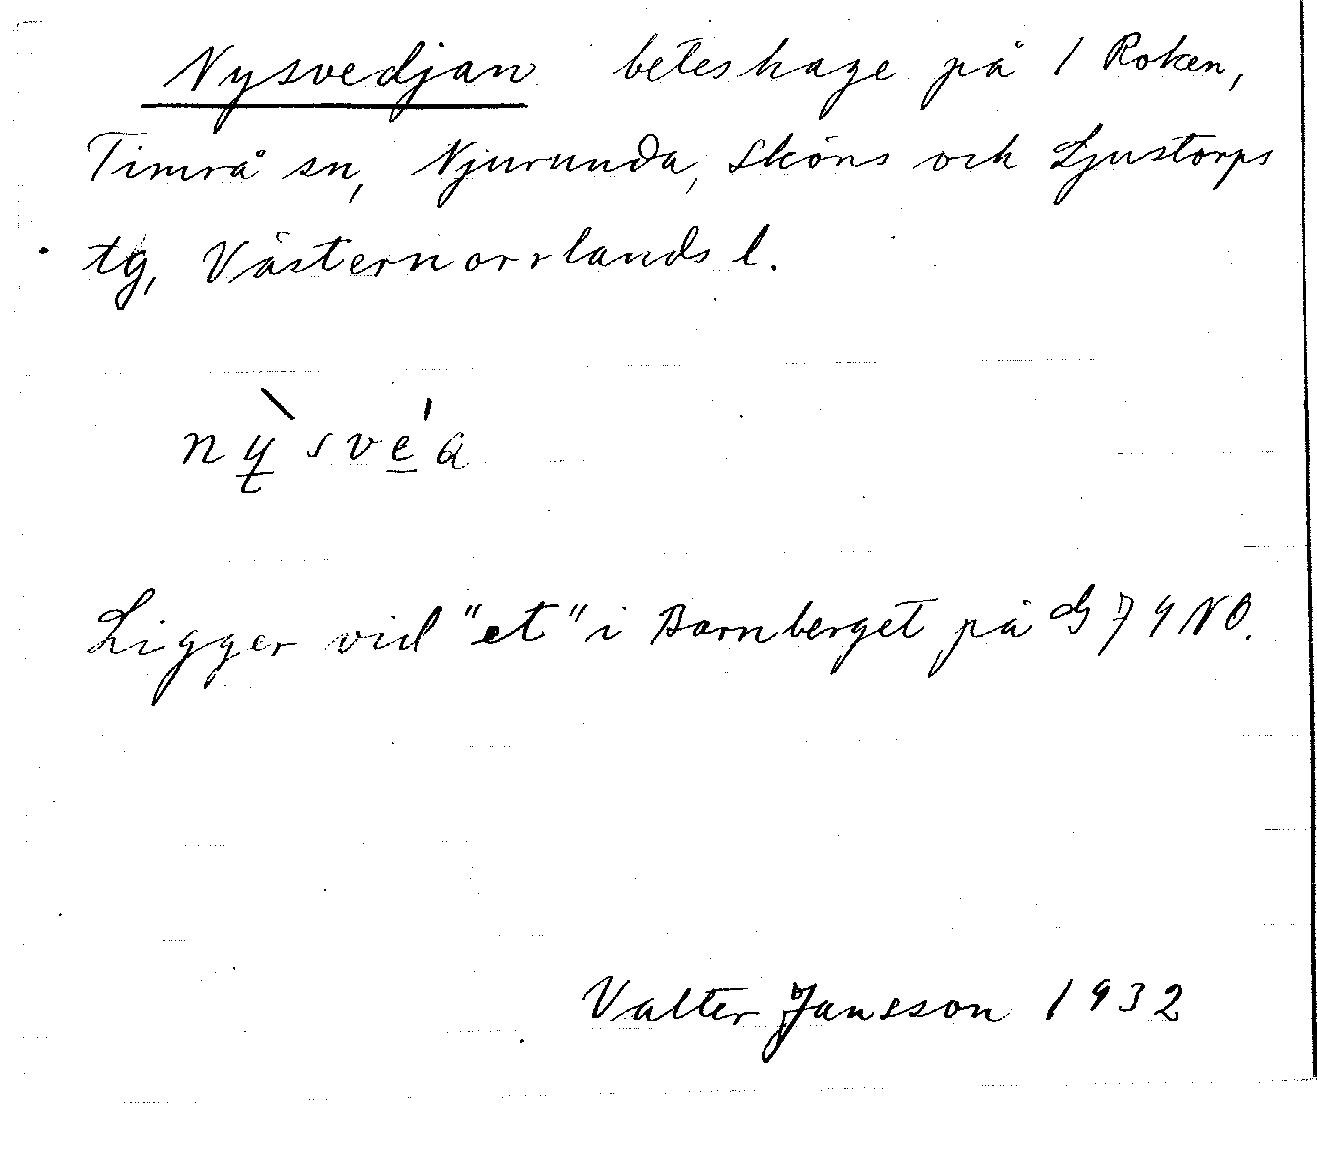 Nysvedjan beteshage på 1 Roken,
Timrå sn, Njurunda, Sköns och Ljustorps
tg, Västernorrlands l.
nỳsve̍a
Ligger vid "et" i Barnberget på G 74 NO.
Valter Jansson 1932